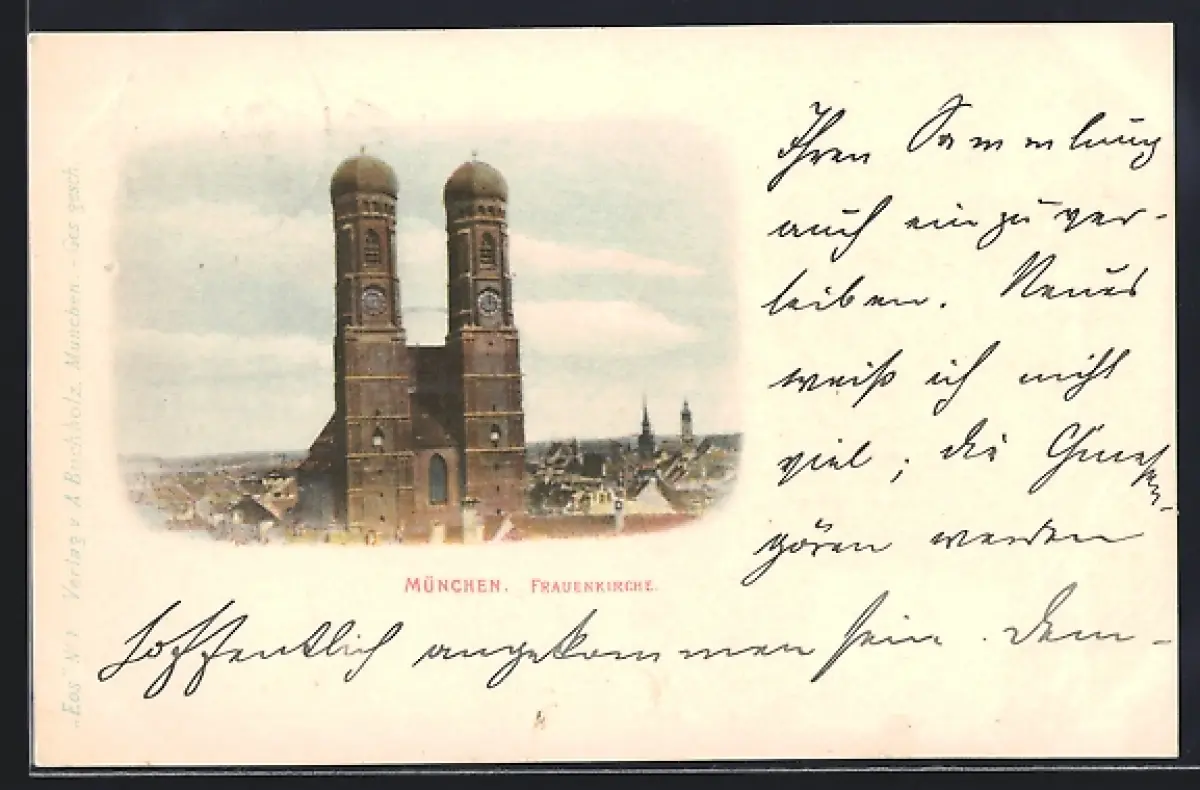 Ihren Sammlung
auch einzuver-
leiben. Neues
weiß ich nicht
viel; die
werden
hoffentlich angekommen sein. Dem-
MÜNCHEN. FRAUENKIRCHE.
„Eos" No 1 Verlag v. A. Buchholz, München. - Ges. gesch.